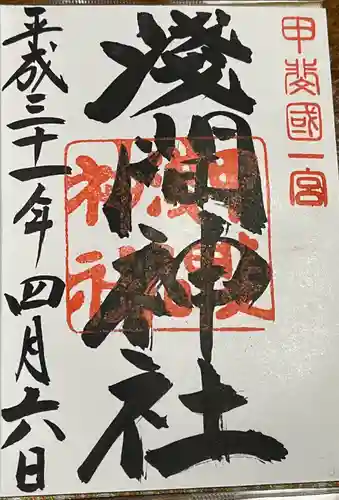 甲斐國一宮
淺間神社
平成三十一年四月六日